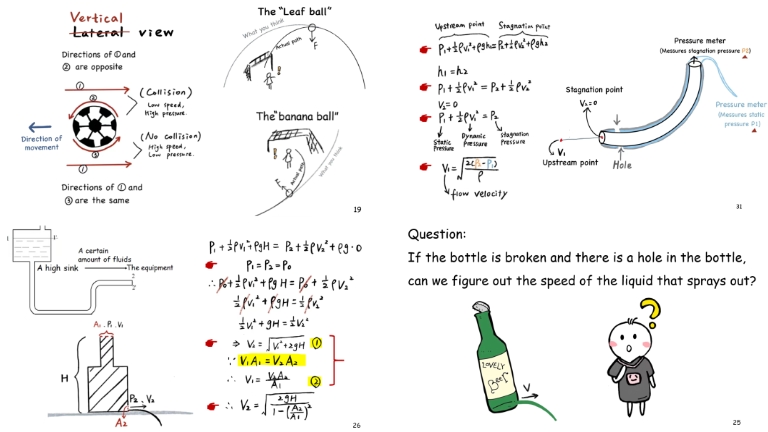 Vertical
Lateral view
Directions of ① and
② are opposite
①
②
(Collision)
Low speed,
High pressure.
Direction of
movement
(No Collision)
High speed,
Low pressure.
③
①
Directions of ① and
③ are the same
The "Leaf ball"
What you think
Actual path
F
The "banana ball"
Actual path
What you think
19
Upstream point Stagnation point
P₁+½ρv₁²+ρgh₁=P₂+½ρv₂²+ρgh₂
h₁=h₂
P₁+½ρv₁² = P₂+½ρv₂²
V₂=0
P₁+½ρv₁² = P₂
Static Pressure
Dynamic Pressure
Stagnation Pressure
V₁=√(2(P₂-P₁)/ρ)
flow velocity
Pressure meter
(Measures stagnation pressure P2)
Stagnation point
V₂=0
Pressure meter
(Measures static
pressure P1)
V₁
Upstream point
Hole
31
A certain
amount of fluids
A high sink
The equipment
A₁, P₁, V₁
H
P₂, V₂
A₂
P₁+½ρv₁²+ρgH = P₂+½ρv₂²+ρg·0
P₁=P₂=P₀
∴ P₀+½ρv₁²+ρgH = P₀+½ρv₂²
½ρv₁²+ρgH=½ρv₂²
½v₁²+gH=½v₂²
⇒ V₂=√(v₁²+2gH) ①
∵ V₁A₁=V₂A₂
∴ V₁=V₂A₂/A₁ ②
∴ V₂=√(2gH/(1-(A₂/A₁)²))
26
Question:
If the bottle is broken and there is a hole in the bottle,
can we figure out the speed of the liquid that sprays out?
LOVELY
Beer
V
?
25